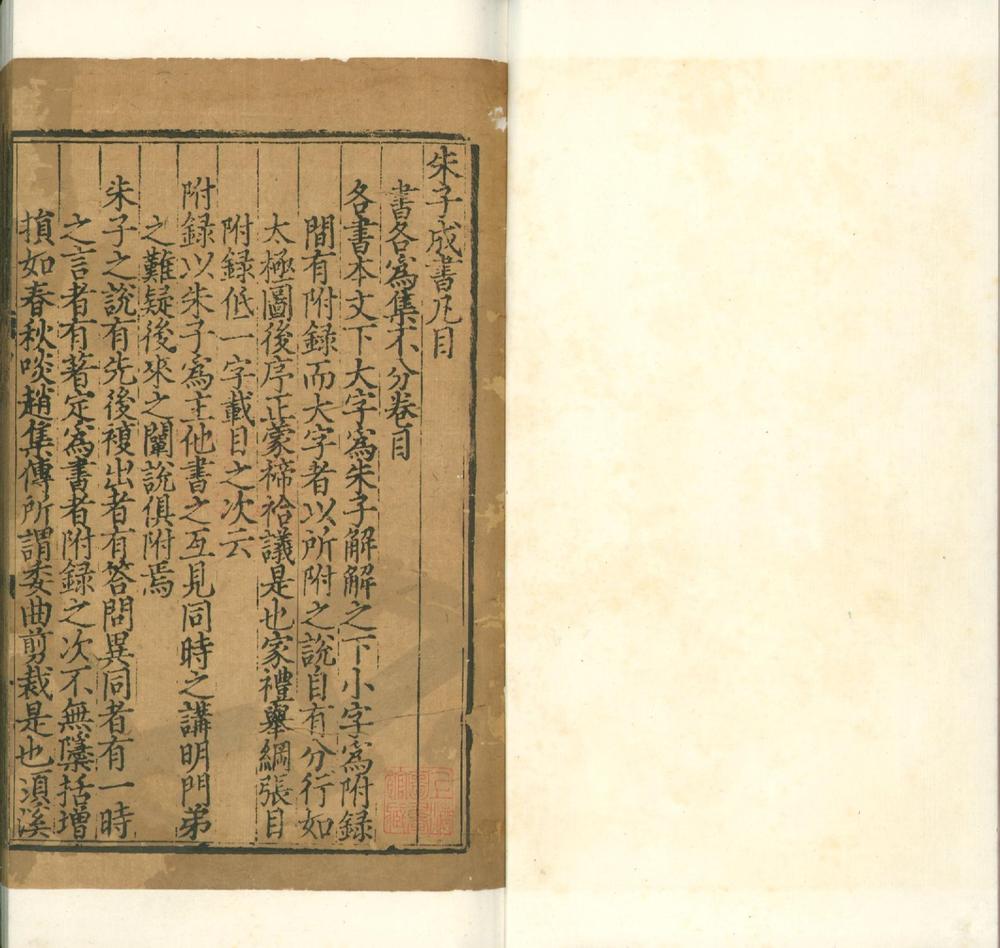 朱子成書凡目
書各為集不分卷目
各書本文下大字為朱子解解之下小字為附錄
間有附録而大字者以所附之說自有分行如
太極圖後序正蒙禘祫議是也家禮舉綱張目
附録低一字載目之次云
附録以朱子為主他書之互見同時之講明門弟
之難疑後來之闡說俱附焉
朱子之說有先後複出者有答問異同者有一時
之言者有著定為書者附録之次不無檃括增
損如春秋啖趙集傳所謂委曲剪裁是也須溪